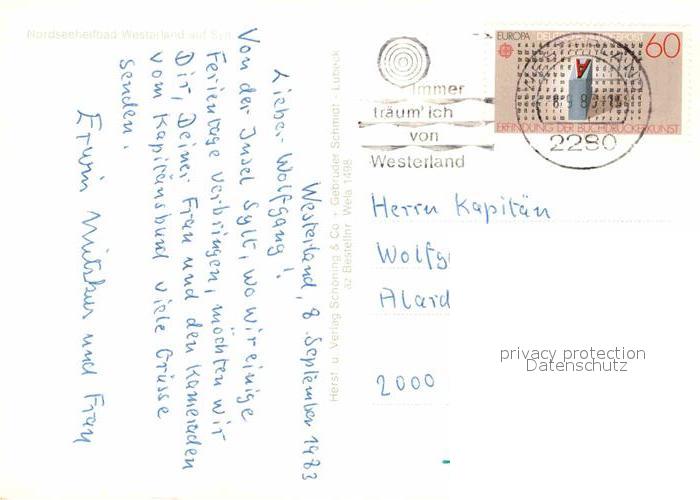 Nordseeheilbad Westerland auf Sylt
Westerland, 8. September 1983
Lieber Wolfgang!
Von der Insel Sylt, wo wir einige
Ferientage verbringen, möchten wir
Dir, Deiner Frau und den Kameraden
vom Kapitänsbund viele Grüsse
senden.
Erwin und Frau
Herst. u. Verlag Schöning & Co + Gebrüder Schmidt - Lübeck
az Bestellnr. Wela 1498
Immer
träum' ich
von
Westerland
EUROPA DEUTSCHE BUNDESPOST 60
A
ERFINDUNG DER BUCHDRUCKERKUNST
2280
Herrn Kapitän
Wolfg
Alard
2000
privacy protection
Datenschutz